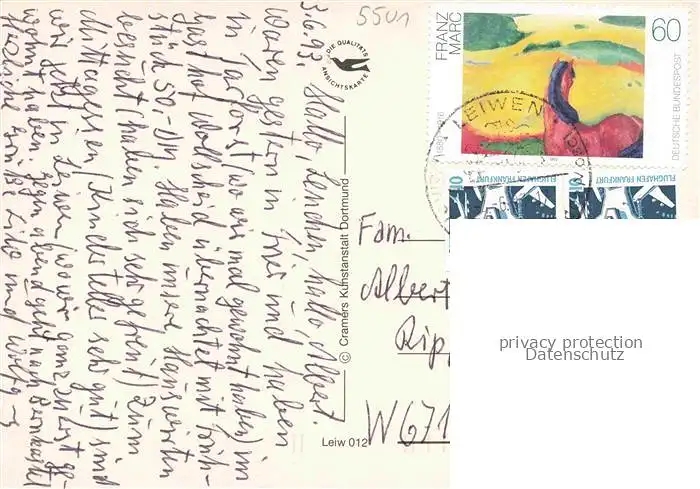 3.6.93. Hallo, Lenchen, hallo, Albert.
Waren gestern in Trier und haben
in Farforst (wo wir mal gewohnt haben) im
Gasthof Wollscheid übernachtet mit Früh-
stück 50,- DM. Haben unsere Hauswirten
besucht, haben sich sehr gefreut) zum
Mittagessen, (Knicketeller sehr gut) sind
wir jetzt in Leiwen, wo wir ganz zuerst ge-
wohnt haben. Gegen abend geht nach Bernkastel
Herzliche Grüße und Wolfg
5501
DIE QUALITÄTS
ANSICHTSKARTE
© Cramers Kunstanstalt Dortmund
Leiw 012
FRANZ
MARC
1880-1916
60
DEUTSCHE BUNDESPOST
LEIWEN
10
FLUGHAFEN FRANKFURT
10
FLUGHAFEN FRANKFURT
Fam.
Albert
Ripp
W 671
privacy protection
Datenschutz